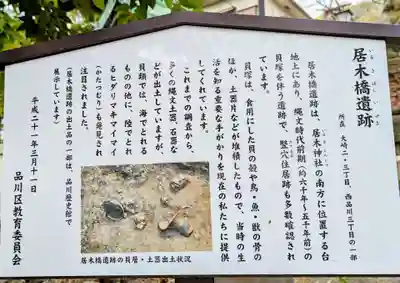 居木橋遺跡
所在 大崎二・三丁目、西品川三丁目の一部
居木橋遺跡は、居木神社の南方に位置する台
地上にあり、縄文時代前期（約六千年～五千年前）の
貝塚を伴う遺跡で、竪穴住居跡も多数確認され
ています。
貝塚は、食用にした貝の殻や鳥・魚・獣の骨の
ほか、土器片などが堆積したもので、当時の生
活を知る重要な手がかりを現在の私たちに提供
してくれています。
これまでの調査から、
多くの縄文土器、石器な
どが出土していますが、
貝類では、海でとれる
ものの他に、陸でとれ
るヒダリマキマイマイ
（かたつむり）も発見され
注目されました。
（居木橋遺跡の出土品の一部は、品川歴史館で
展示しています）
平成二十一年三月十一日
品川区教育委員会
居木橋遺跡の貝層・土器出土状況